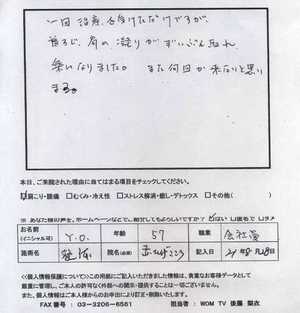 一回治療を受けただけですが、
首、肩の凝りがずいぶん取れ
楽になりました。また何回か来ないと思い
ます。
本日、ご来院された理由に当てはまる項目をチェックしてください。
☑肩こり・腰痛 □むくみ・冷え性 □ストレス解消・癒し・デトックス □その他( )
あなた様の声を、ホームページなどでご紹介してもよろしいですか?
お名前 (イニシャル可) Y.O. 年齢 57 職業 会社員
施術名 院名(必須) 記入日
<個人情報保護について>この用紙にご記入いただきました情報は、貴重なお客様データとして
厳重に管理し、ご本人の許可なく外部への開示・提供することは一切ございません。
また、個人情報はご本人様からのお申出により訂正・削除いたします。
FAX番号:03-3206-6581 担当者:WOM TV 後藤 梨衣